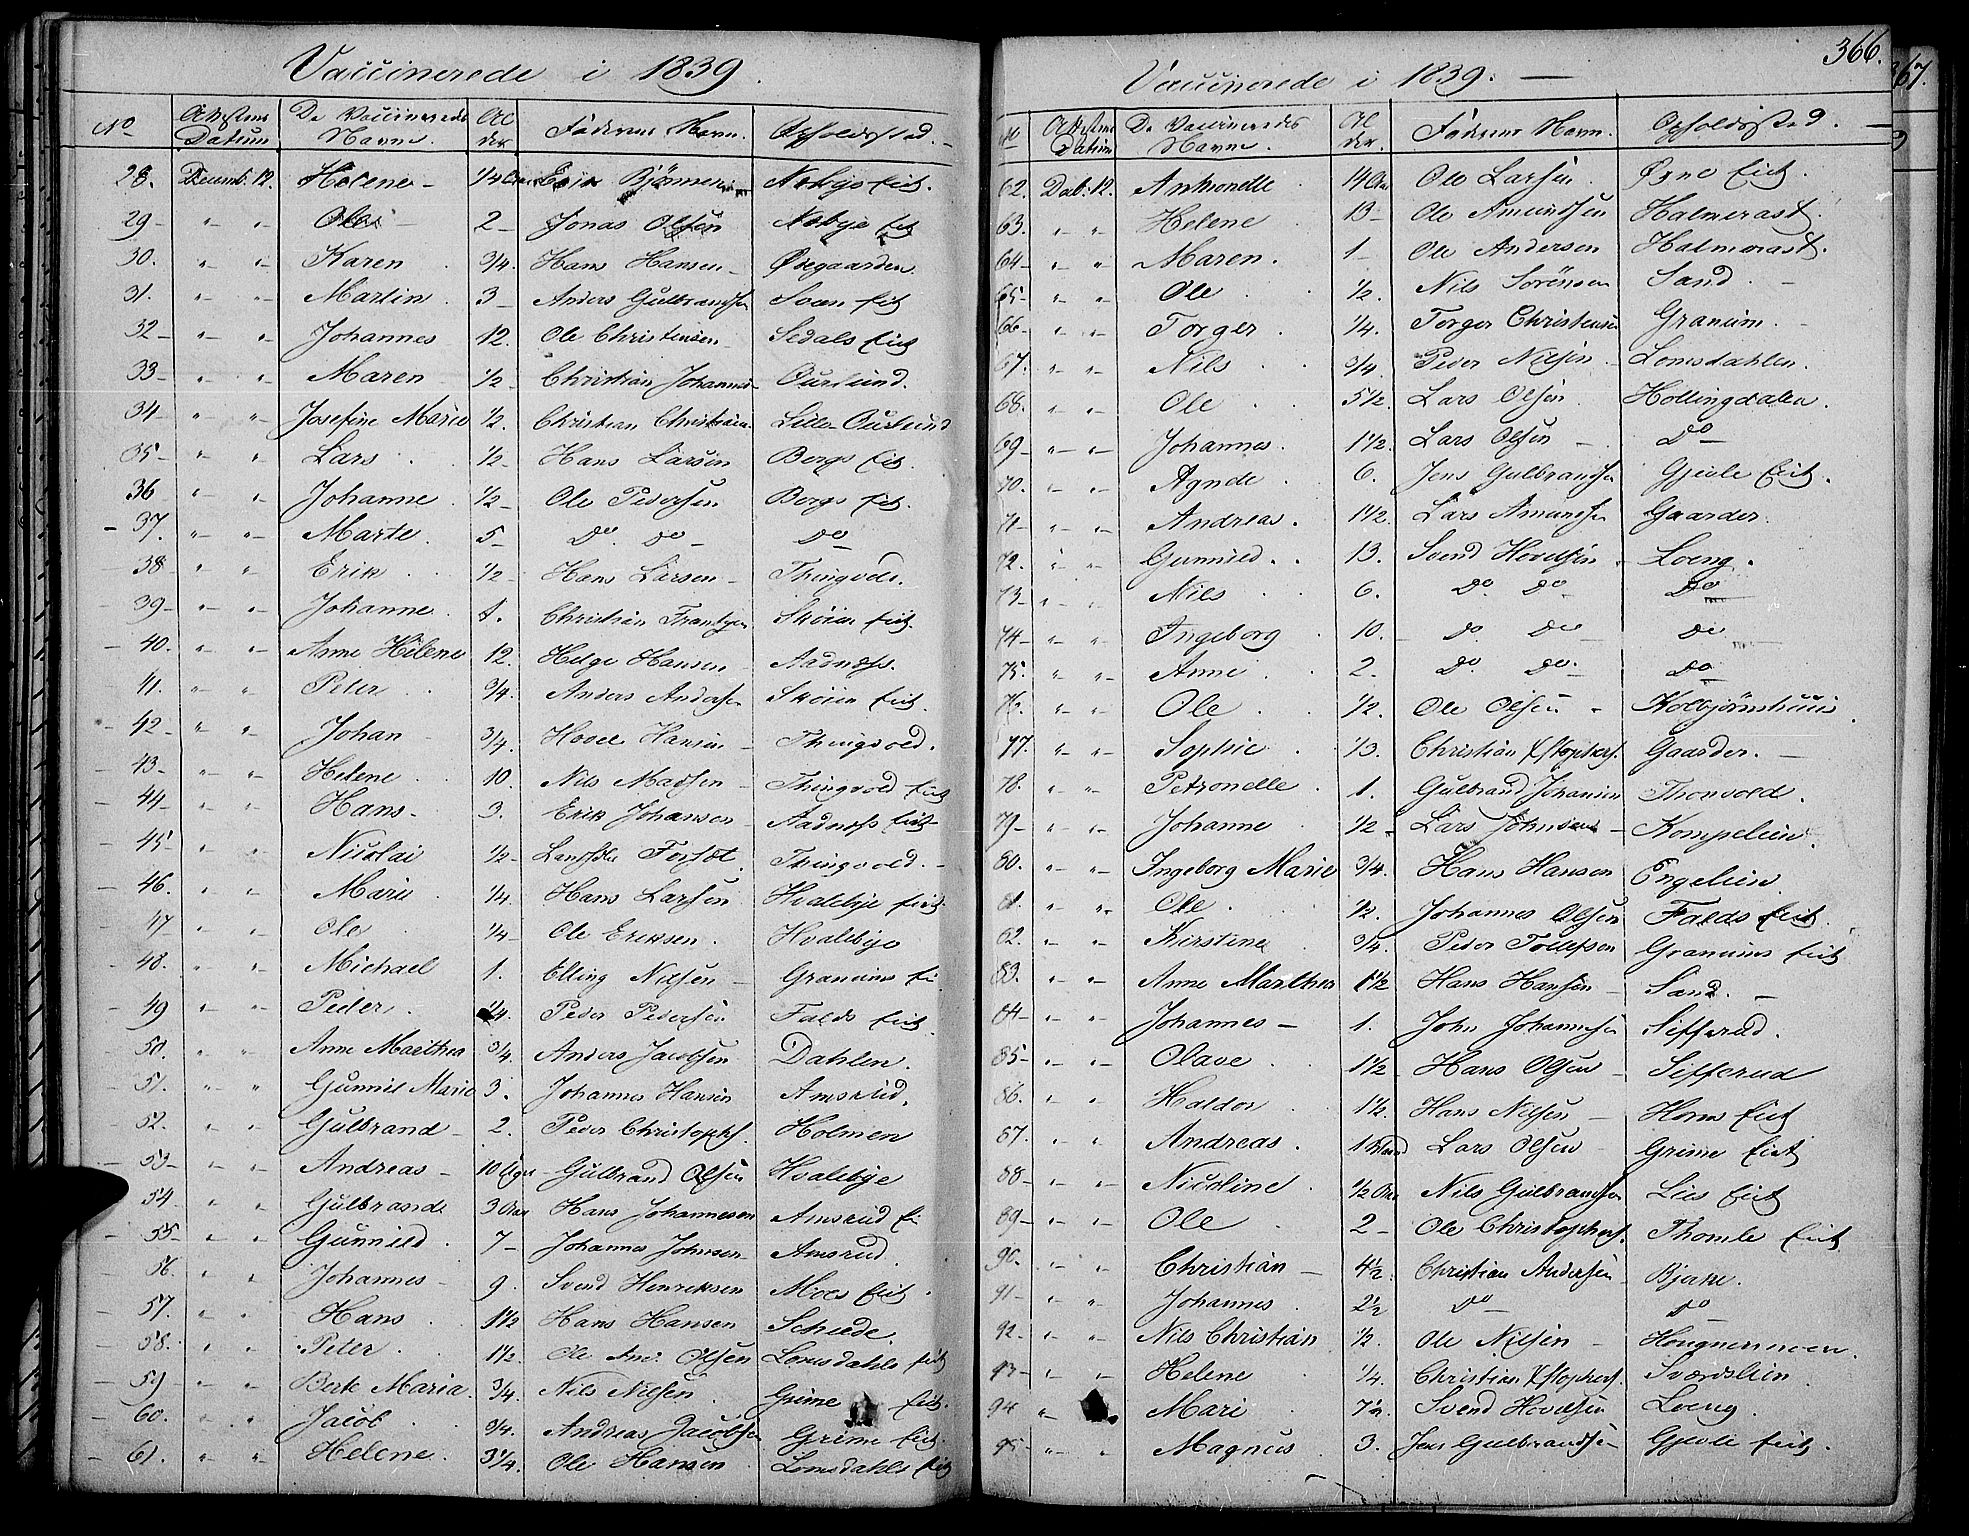 Vaccinerede i 1839.
No Attestens Datum De Vaccineredes Navne. Alder Faderens Navn. Opholdssted.
28. Decemb. 12. Helene 1/4 Aar Erik Nokys Eiet.
29 " " Ole 2 Jonas Olsen Eiet
30. " " Karen 3/4. Hans Hansen Ødegaarden
31. " " Martin 3 Anders Gulbrandsen Eiet
32 " " Johannes 12. Ole Christensen Eiet
33 " " Maren 1/2 Christian Johannes Ourlund.
34 " " Josefine Marie 1/2. Christian Christian Lille Ourlund
35 " " Lars 1/2 Hans Larsen Bergs Eiet.
36 " " Johanne 1/2 Ole Pedersen Bergs Eiet.
37. " " Marte. 5 Do. Do Do
38 " " Erik 1/2 Hans Larsen Thingvold.
39 " " Johanne Christian Frantzen Skøien Eiet.
40. " " Anne Helene 12. Helge Hansen Aadnæs.
41. " " Peter 3/4. Anders Andersen Skøien Eiet.
42 " " Johan 3/4. Hovel Hansen Thingvold.
43 " " Helene 10. Nils Madsen Thingvold Eiet
44 " " Hans 3. Erik Johansen Aadnæs Eiet
45 " " Nicolai 1/2 Thingvold.
46. " " Marie 1/4. Hans Larsen Hvalebye Eiet.
47 " " Ole 1/4 Ole Eriksen. Hvalebye
48. " " Michael 1. Elling Nilsen Granums Ei
49 " " Peder. 1/4. Peder Pedersen Falds Eiet.
50. " " Anne Maethea 3/4. Anders Jacobsen Dahlen.
51. " " Gunnil Marie 3. Johannes Hansen Amsrud.
52. " " Gulbrand 2. Peder Christophs. Holmen
53 " " Andreas 10 Uger Gulbrand Olsen Hvalebye
54 " " Gulbrand 3 Aar Hans Johannesen Amsrud Ei
55 " " Gunnild 7 Johannes Johnsen Amsrud.
56. " " Johannes 9. Svend Henriksen Moes Eiet.
57. " " Hans 1 1/2 Hans Hansen
58. " " Peter 1 1/2. Ole And. Olsen Lomsdahls Eiet
59 " " Berte Maria. 3/4. Nils Nilsen Grime Eiet.
60. " " Jacob 3/4. Andreas Jacobsen Grime Eiet.
61. " " Helene. 3 1/4. Ole Hansen Lomsdahls Eiet
366.
Vaccinerede i 1839.
No Attestens Datum De Vaccineredes Navne. Alder. Faderens Navn. Opholdssted.
62. Decb. 12. Antonette 14 Aar Ole Larsen Øsne Eiet.
63. " " Helene 13 Ole Amundsen Halmrast.
64 " " Maren. 1 Ole Andersen Halmrast.
65 " " Ole 1/2. Nils Sørensen Sand.
66 " " Torger 1/4. Torger Christensen Granum.
67. " " Nils 3/4. Peder Nilsen Lomsdahlen.
68. " " Ole 5 1/2. Lars Olsen Hollingdalen.
69 " " Johannes. 1 1/2. Lars Olsen Do
70. " " Agnde 6. Jens Gulbrandsen Gjevle Eiet.
71 " " Andreas. 1 1/2. Lars Amundsen Gaarder.
72. " " Gunnild. 13. Svend Hovelsen Loeng.
73 " " Nils 6. Do Do Do
74 " " Ingeborg 10. Do Do Do
75. " " Anne 2. Do Do Do
76. " " Ole 1/2. Ole Olsen Kolbjørnshuus
77. " " Sophie 13. Christian Xstophers. Gaarder.
78. " " Petronelle 1. Gulbrand Johansen Thonvold.
79 " " Johanne 1/2 Lars Johnsen Kompelien.
80. " " Ingeborg Marie 3/4. Hans Hansen Engelien
81. " " Ole 1/2. Johannes Olsen Falds Eiet.
82. " " Kirstine 3/4. Peder Tollefsen Granums Eiet
83. " " Anne Marthea 1 1/2 Hans Hansen Sand.
84 " " Johannes 1. John Johannesen Sifferud.
85 " " Olave 1 1/2 Hans Olsen Sifferud
86. " " Haldor 1 1/2. Hans Nilsen Horns Eiet
87. " " Andreas. Lars Olsen Grime Eiet
88 " " Nicoline 1/2 Aar Nils Gulbrandsen Lies Eiet
89 " " Ole 2 Ole Christophers. Thomle Eiet
90. " " Christian 4 1/2. Christian Andersen Bjake.
91 " " Johannes 2 1/2 Do Do
92 " " Nils Christian 1/2. Ole Nilsen Hougnermoen.
93 " " Helene 1/4. Christian Xstophers. Sværdslien
94 " Mari 7 1/2. Svend Hovelsen Loeng.
95 " " Magnus 3. Jens Gulbrandsen Gjevle Eiet.
67.